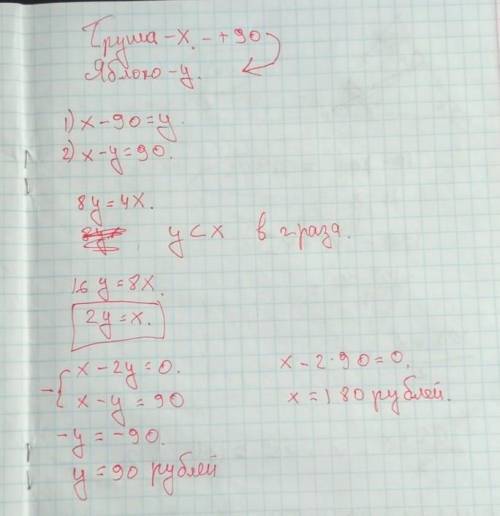 Груша - x. - +90
Яблоко - y.
1) x - 90 = y.
2) x - y = 90.
8y = 4x.
y < x в 2 раза.
16y = 8x.
2y = x.
x - 2y = 0.
x - y = 90
-y = -90.
y = 90 рублей
x - 2·90 = 0.
x = 180 рублей.